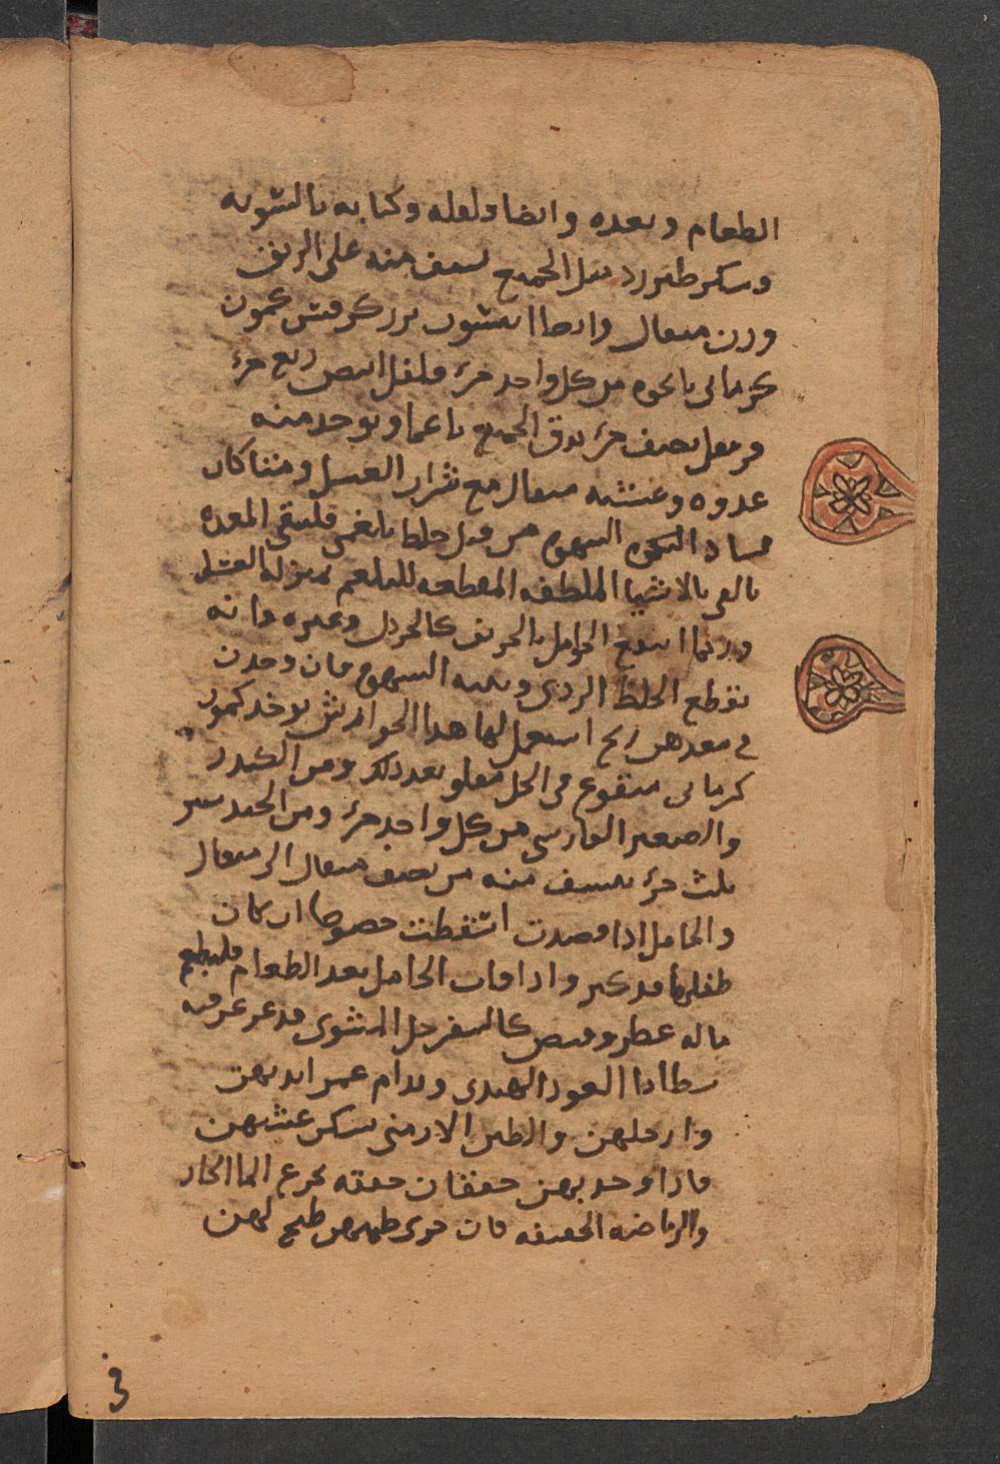 الطعام وبعده وايضا دلعله وكبابه بالسويه
وسكر طبرزد مثل الجميع يسف منه على الريق
وزن مثقال وايضا انيسون بزر كرفس كمون
كرماني نانخوه من كل واحد جزء فلفل ابيض ربع جزء
قرنفل نصف جزء يدق الجميع ناعما ويوخذ منه
غدوه وعشيه مثقال مع شراب العسل ومتى كان
فساد الشهوه من قبل خلط بلغمي فلينقى المعده
بالقي بالاشيا الملطفه المقطعه للبلغم بمنزله العسل
وربما انتفع الحوامل بالحريف كالخردل وغيره فانه
يقطع الخلط الردي وينبه الشهوه فان وجدن
في معدهن ريح استعمل لها هذا الجوارش يوخذ كمون
كرماني منقوع في الخل مقلو بعد ذلك ومن الكندر
والصعتر الفارسي من كل واحد جزء ومن الجندبيدستر
ثلث جزء يستف منه من نصف مثقال الى مثقال
والحامل اذا فصدت اسقطت خصوصا ان كان
طفلها قد كبر واذا قات الحامل بعد الطعام فليطعم
ما له عطر وقبض كالسفرجل المشوي قد غرز فيه
شظايا العود الهندي ويدام غمز ايديهن
وارجلهن والطين الارمني يسكن غثيهن
فاذا وجد بهن خفقان خففه تجرع الما الحار
والرياضه الخفيفه فان قوي ظهرهن طبخ لهن